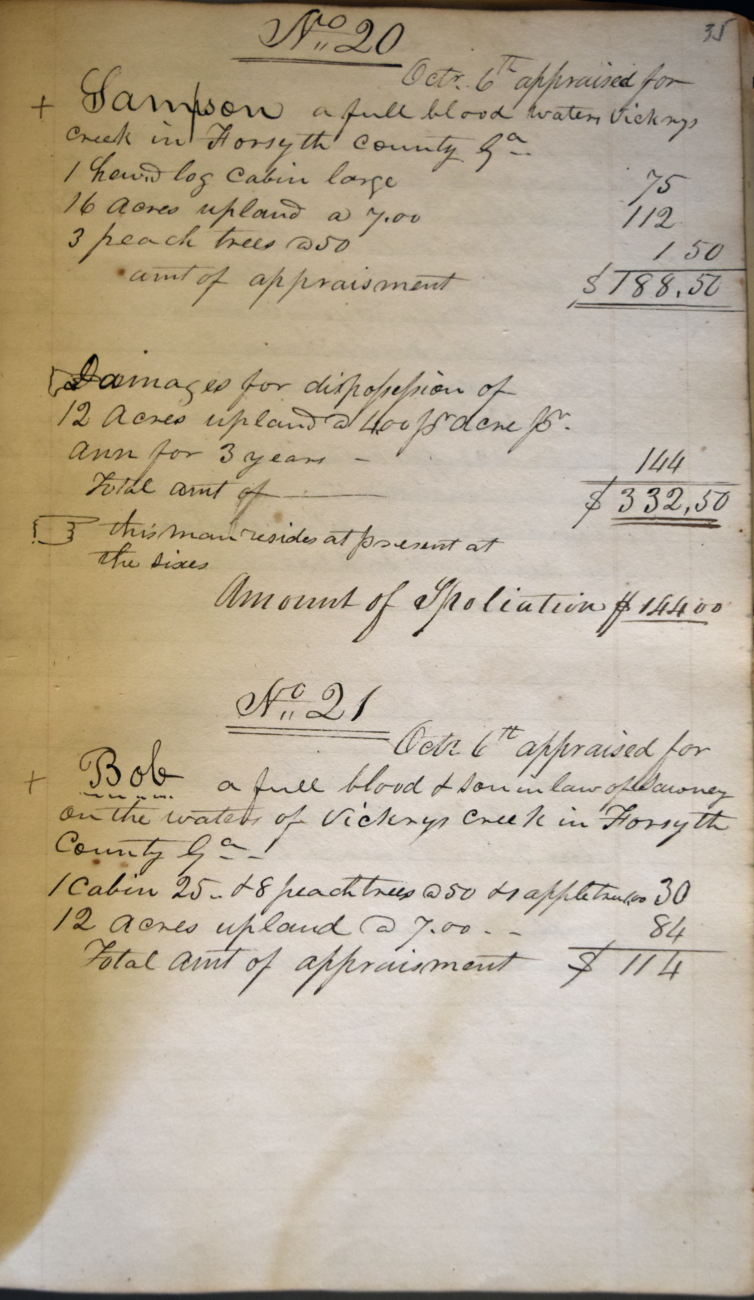 35
No. 20
Octr. 6th appraised for
+ Sampson a full blood waters Vickrys
creek in Forsyth county Ga
1 hew'd log cabin large 75
16 acres upland @ 7.00 112
3 peach trees @ 50 1 50
amt of appraisment $188.50
Damages for dispossession of
12 acres upland @ 400 pr acre pr.
ann for 3 years - 144
Total amt of $332.50
this man resides at present at
the sixes
Amount of Spoliation $144 00
No. 21
Octr 6th appraised for
+ Bob a full blood & son in law of Sawney
on the waters of Vickrys Creek in Forsyth
County Ga -
1 cabin 25.. & 8 peach trees @ 50 & 1 apple tree 1.00 30
12 acres upland @ 7.00 - - 84
Total amt of appraisment $114